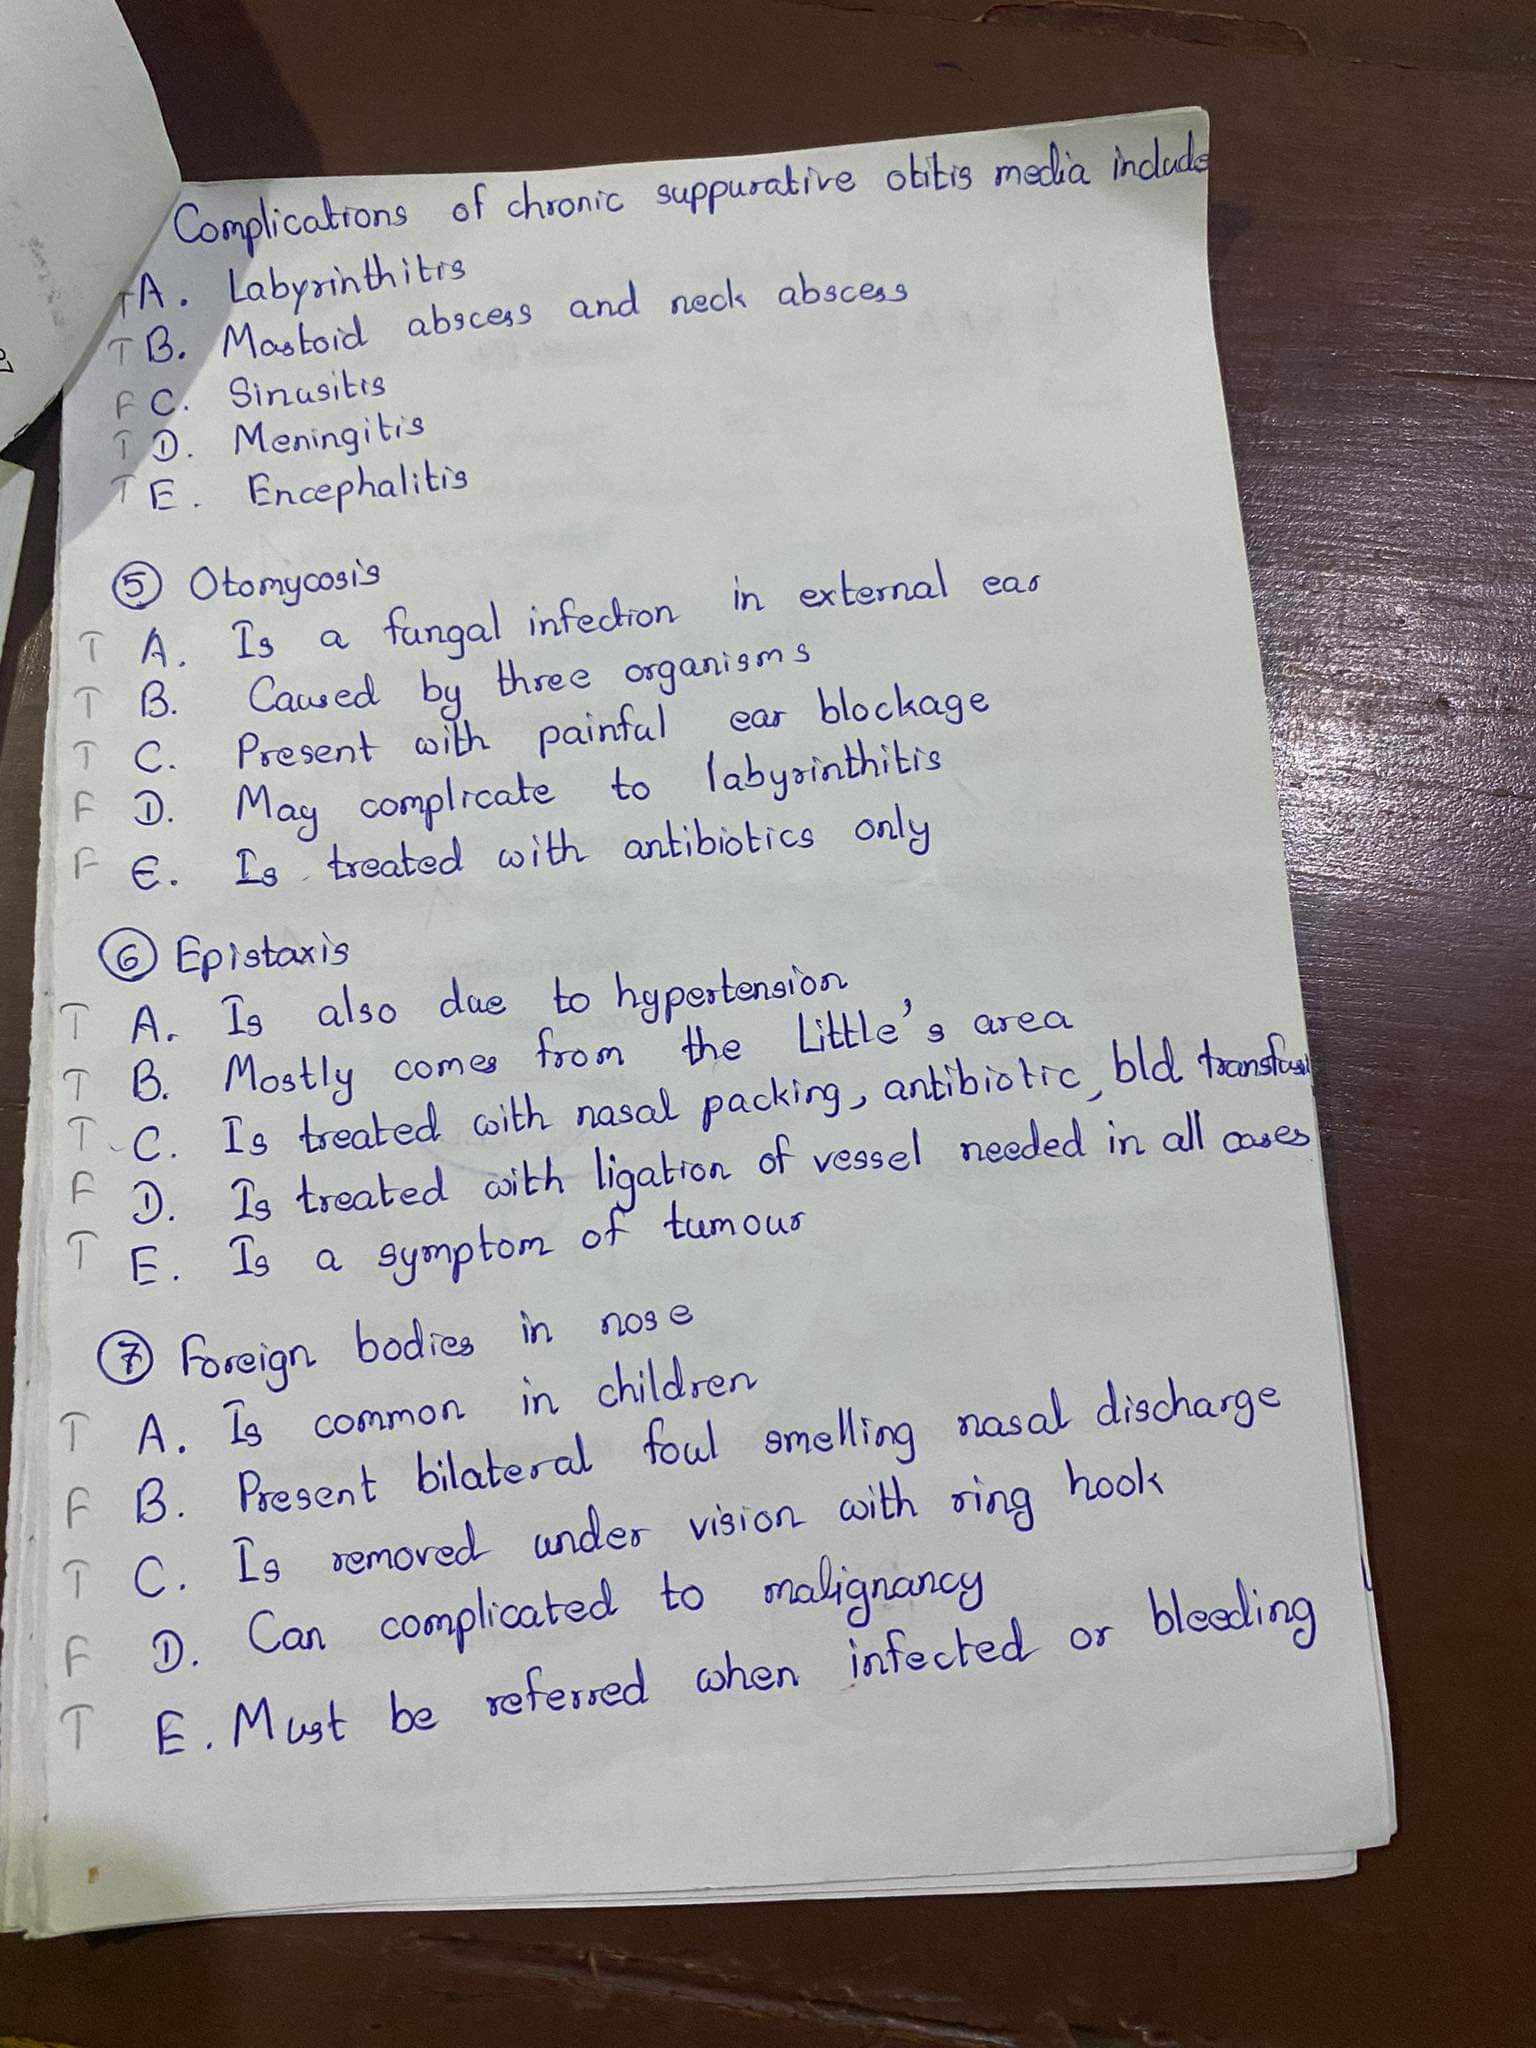 Complications of chronic suppurative otitis media include
T A. Labyrinthitis
T B. Mastoid abscess and neck abscess
F C. Sinusitis
T D. Meningitis
T E. Encephalitis
5 Otomycosis
T A. Is a fungal infection in external ear
T B. Caused by three organisms
T C. Present with painful ear blockage
F D. May complicate to labyrinthitis
F E. Is treated with antibiotics only
6 Epistaxis
T A. Is also due to hypertension
T B. Mostly comes from the Little's area
T C. Is treated with nasal packing, antibiotic, bld transfusi
F D. Is treated with ligation of vessel needed in all cases
T E. Is a symptom of tumour
7 Foreign bodies in nose
T A. Is common in children
F B. Present bilateral foul smelling nasal discharge
T C. Is removed under vision with ring hook
F D. Can complicated to malignancy
T E. Must be referred when infected or bleeding